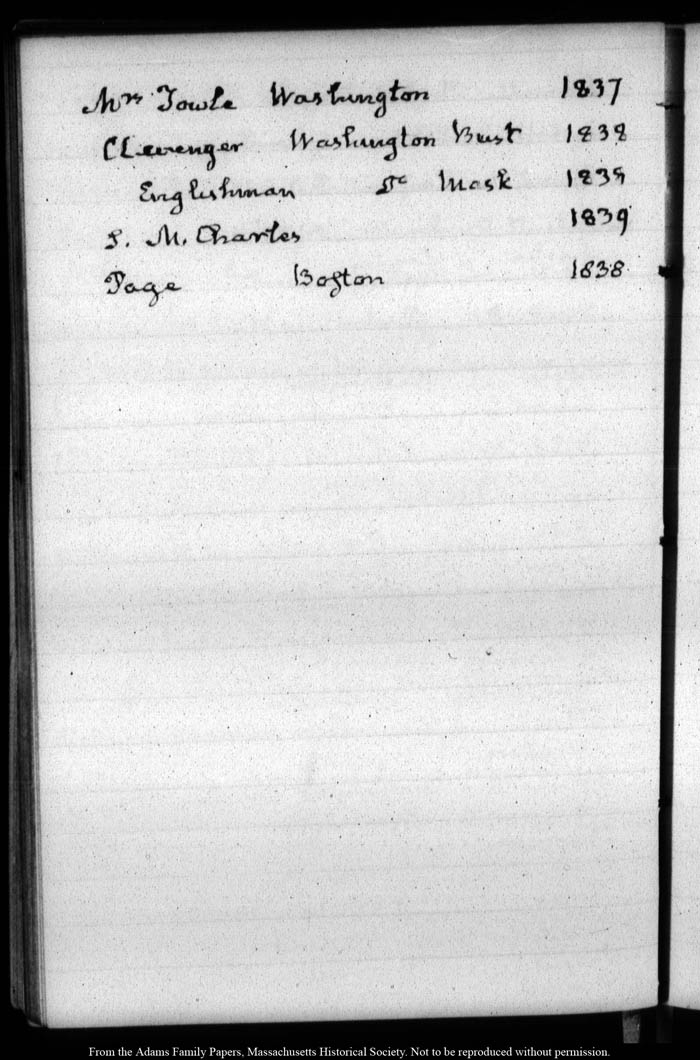 Mrs Towle Washington 1837
Clevenger Washington Bust 1838
Englishman Do Mask 1838
S. M. Charles 1839
Page Boston 1838
From the Adams Family Papers, Massachusetts Historical Society. Not to be reproduced without permission.